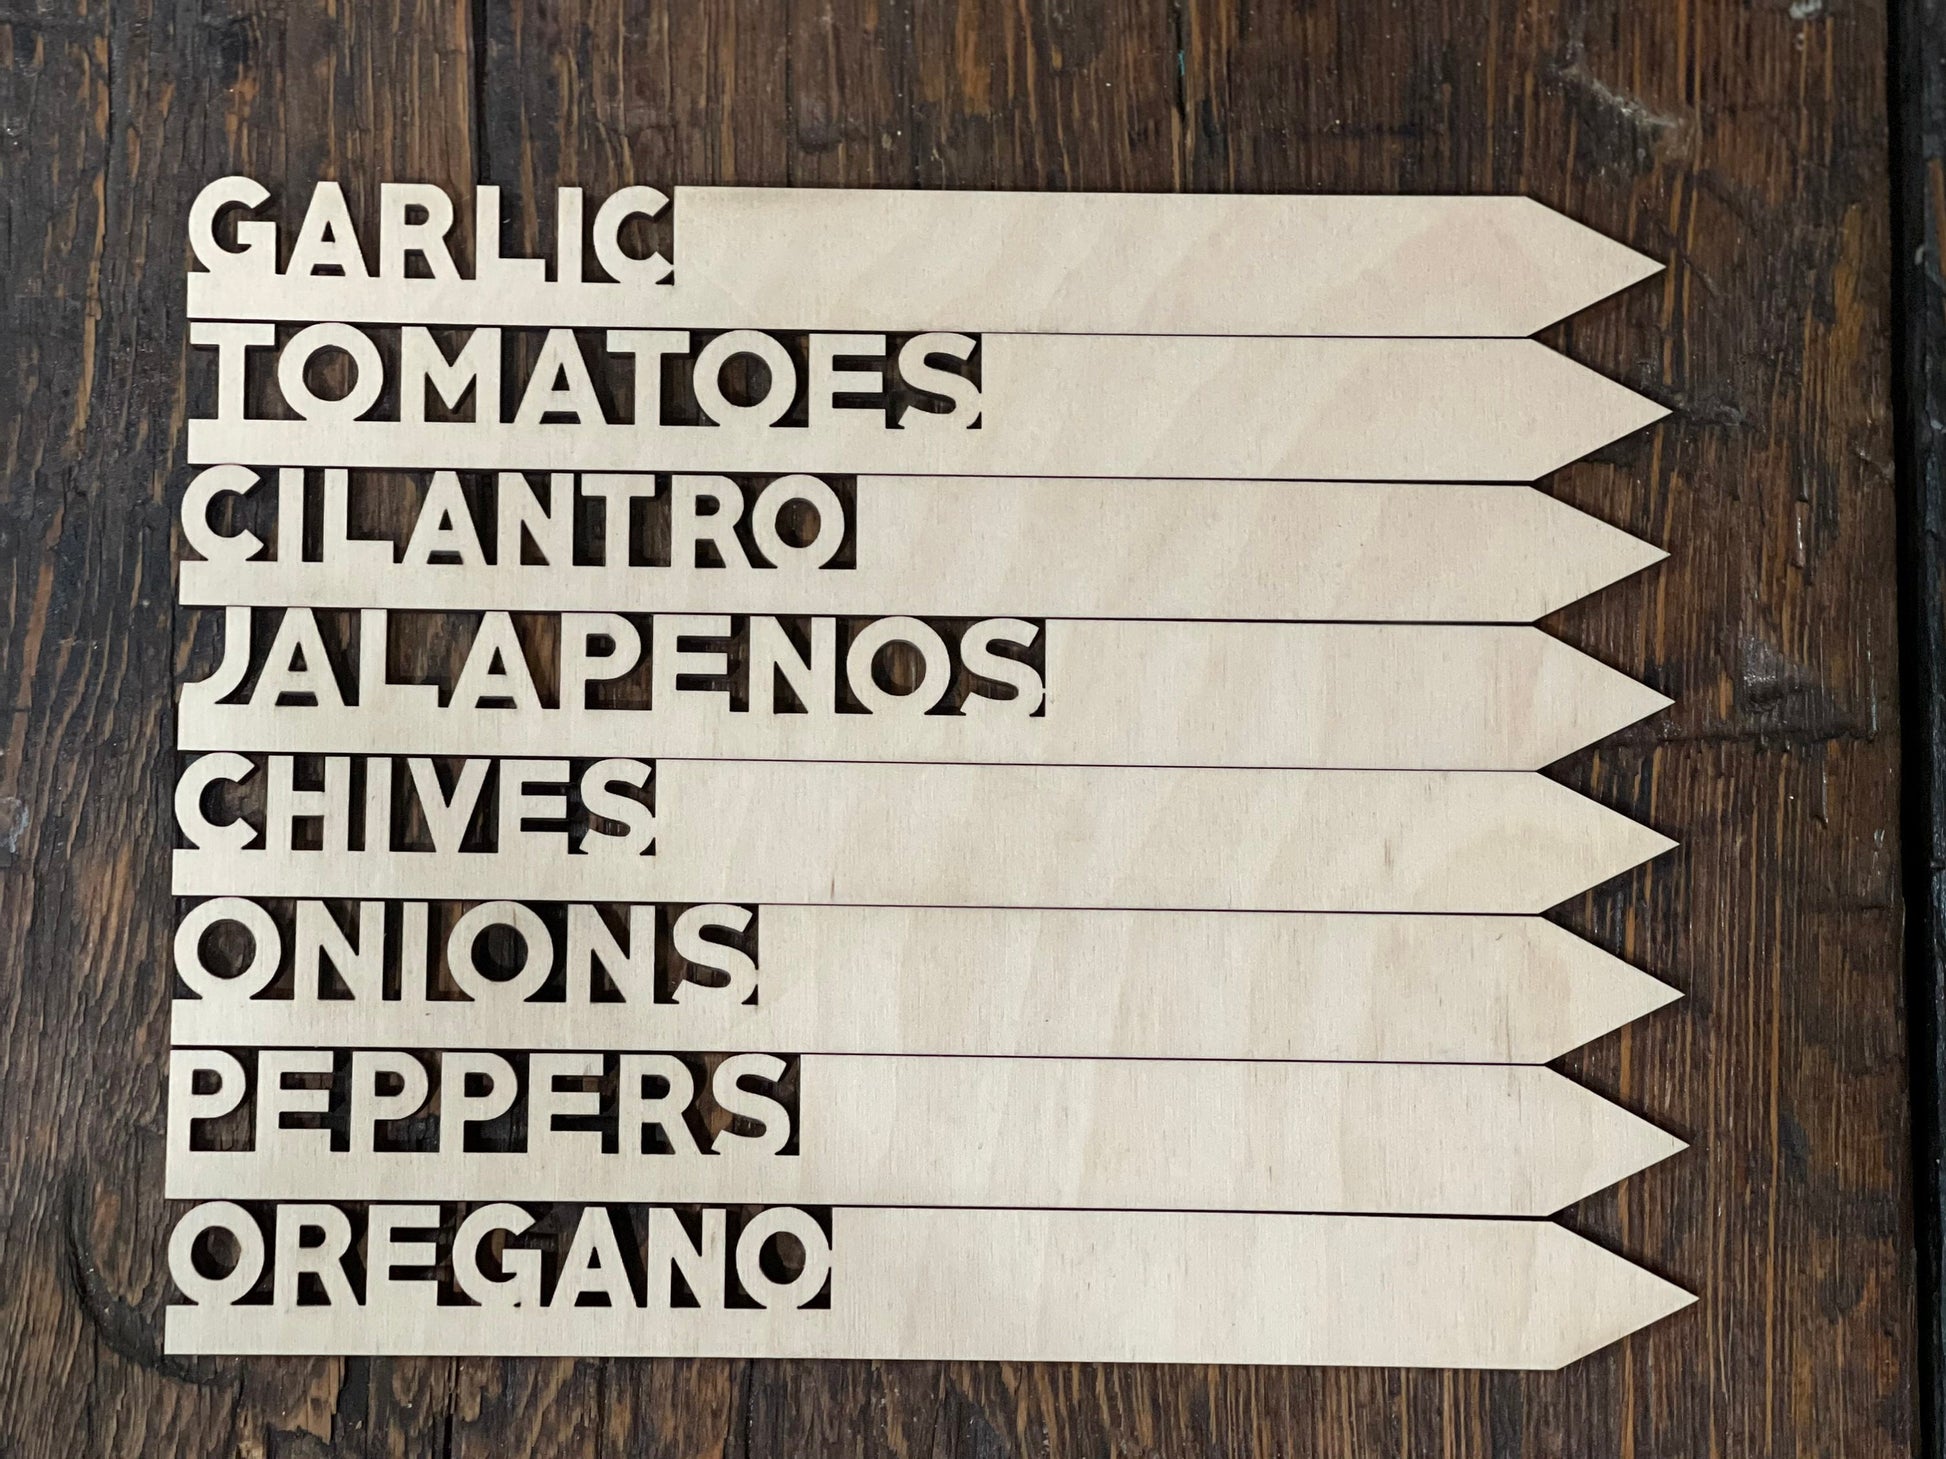 GARLIC
TOMATOES
CILANTRO
JALAPENOS
CHIVES
ONIONS
PEPPERS
OREGANO